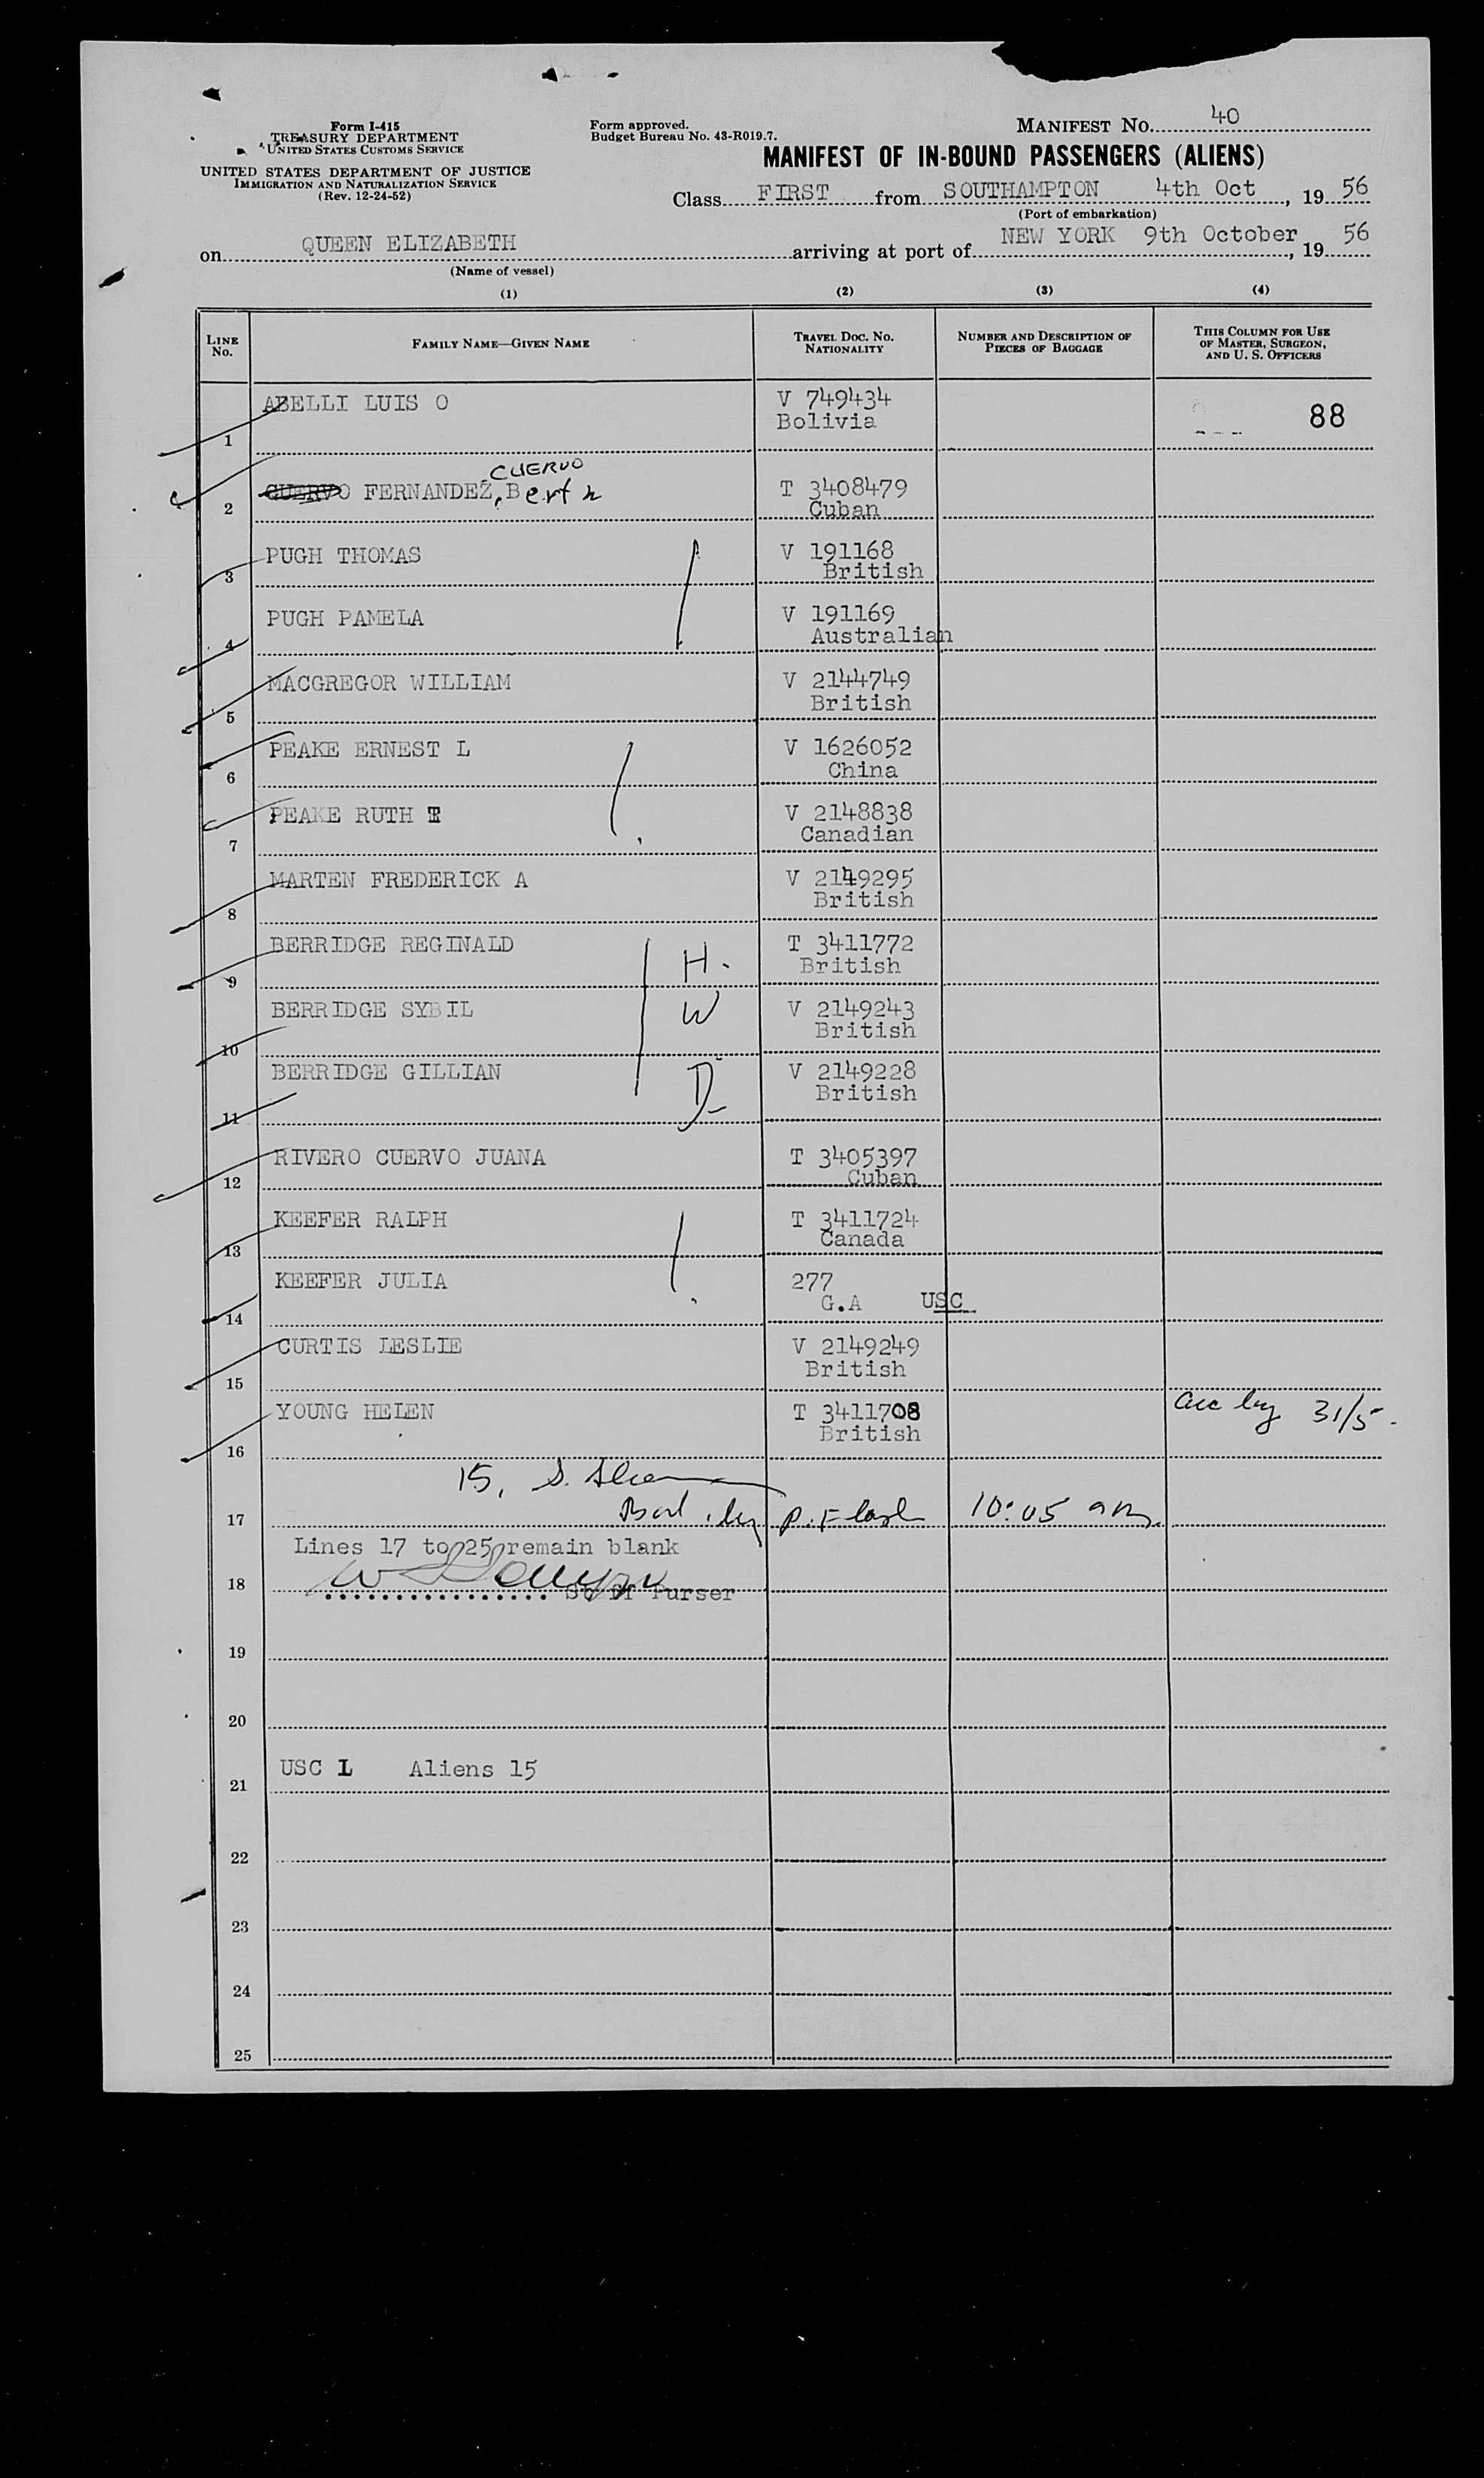 Form I-415
TREASURY DEPARTMENT
UNITED STATES CUSTOMS SERVICE
UNITED STATES DEPARTMENT OF JUSTICE
IMMIGRATION AND NATURALIZATION SERVICE
(Rev. 12-24-52)
Form approved.
Budget Bureau No. 43-R019.7.
MANIFEST NO. 40
MANIFEST OF IN-BOUND PASSENGERS (ALIENS)
Class FIRST from SOUTHAMPTON 4th Oct, 19 56
(Port of embarkation)
on QUEEN ELIZABETH arriving at port of NEW YORK 9th October, 19 56
(Name of vessel)
(1) (2) (3) (4)
LINE No. FAMILY NAME—GIVEN NAME TRAVEL DOC. NO. NATIONALITY NUMBER AND DESCRIPTION OF PIECES OF BAGGAGE THIS COLUMN FOR USE OF MASTER, SURGEON, AND U. S. OFFICERS
1 ABELLI LUIS O V 749434 88
Bolivia
CUERVO
2 CUERVO FERNANDEZ, Berta T 3408479
Cuban
3 PUGH THOMAS V 191168
British
4 PUGH PAMELA V 191169
Australian
5 MACGREGOR WILLIAM V 2144749
British
6 PEAKE ERNEST L V 1626052
China
7 PEAKE RUTH T V 2148838
Canadian
8 MARTEN FREDERICK A V 2149295
British
9 BERRIDGE REGINALD H. T 3411772
British
10 BERRIDGE SYBIL W V 2149243
British
11 BERRIDGE GILLIAN D V 2149228
British
12 RIVERO CUERVO JUANA T 3405397
Cuban
13 KEEFER RALPH T 3411724
Canada
14 KEEFER JULIA 277
G.A USC
15 CURTIS LESLIE V 2149249
British
16 YOUNG HELEN T 3411708 31/5
British
15, S.
17 10:05 am
Lines 17 to 25 remain blank
18 Purser
19
20
21 USC 1 Aliens 15
22
23
24
25